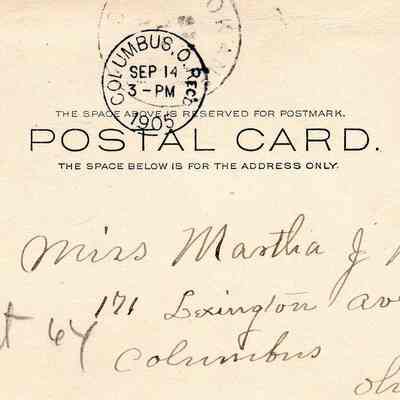 COLUMBUS, O. REC'D.
SEP 14
3-PM
1905
THE SPACE ABOVE IS RESERVED FOR POSTMARK.
POSTAL CARD.
THE SPACE BELOW IS FOR THE ADDRESS ONLY.
Miss Martha J
171 Lexington av
64
Columbus